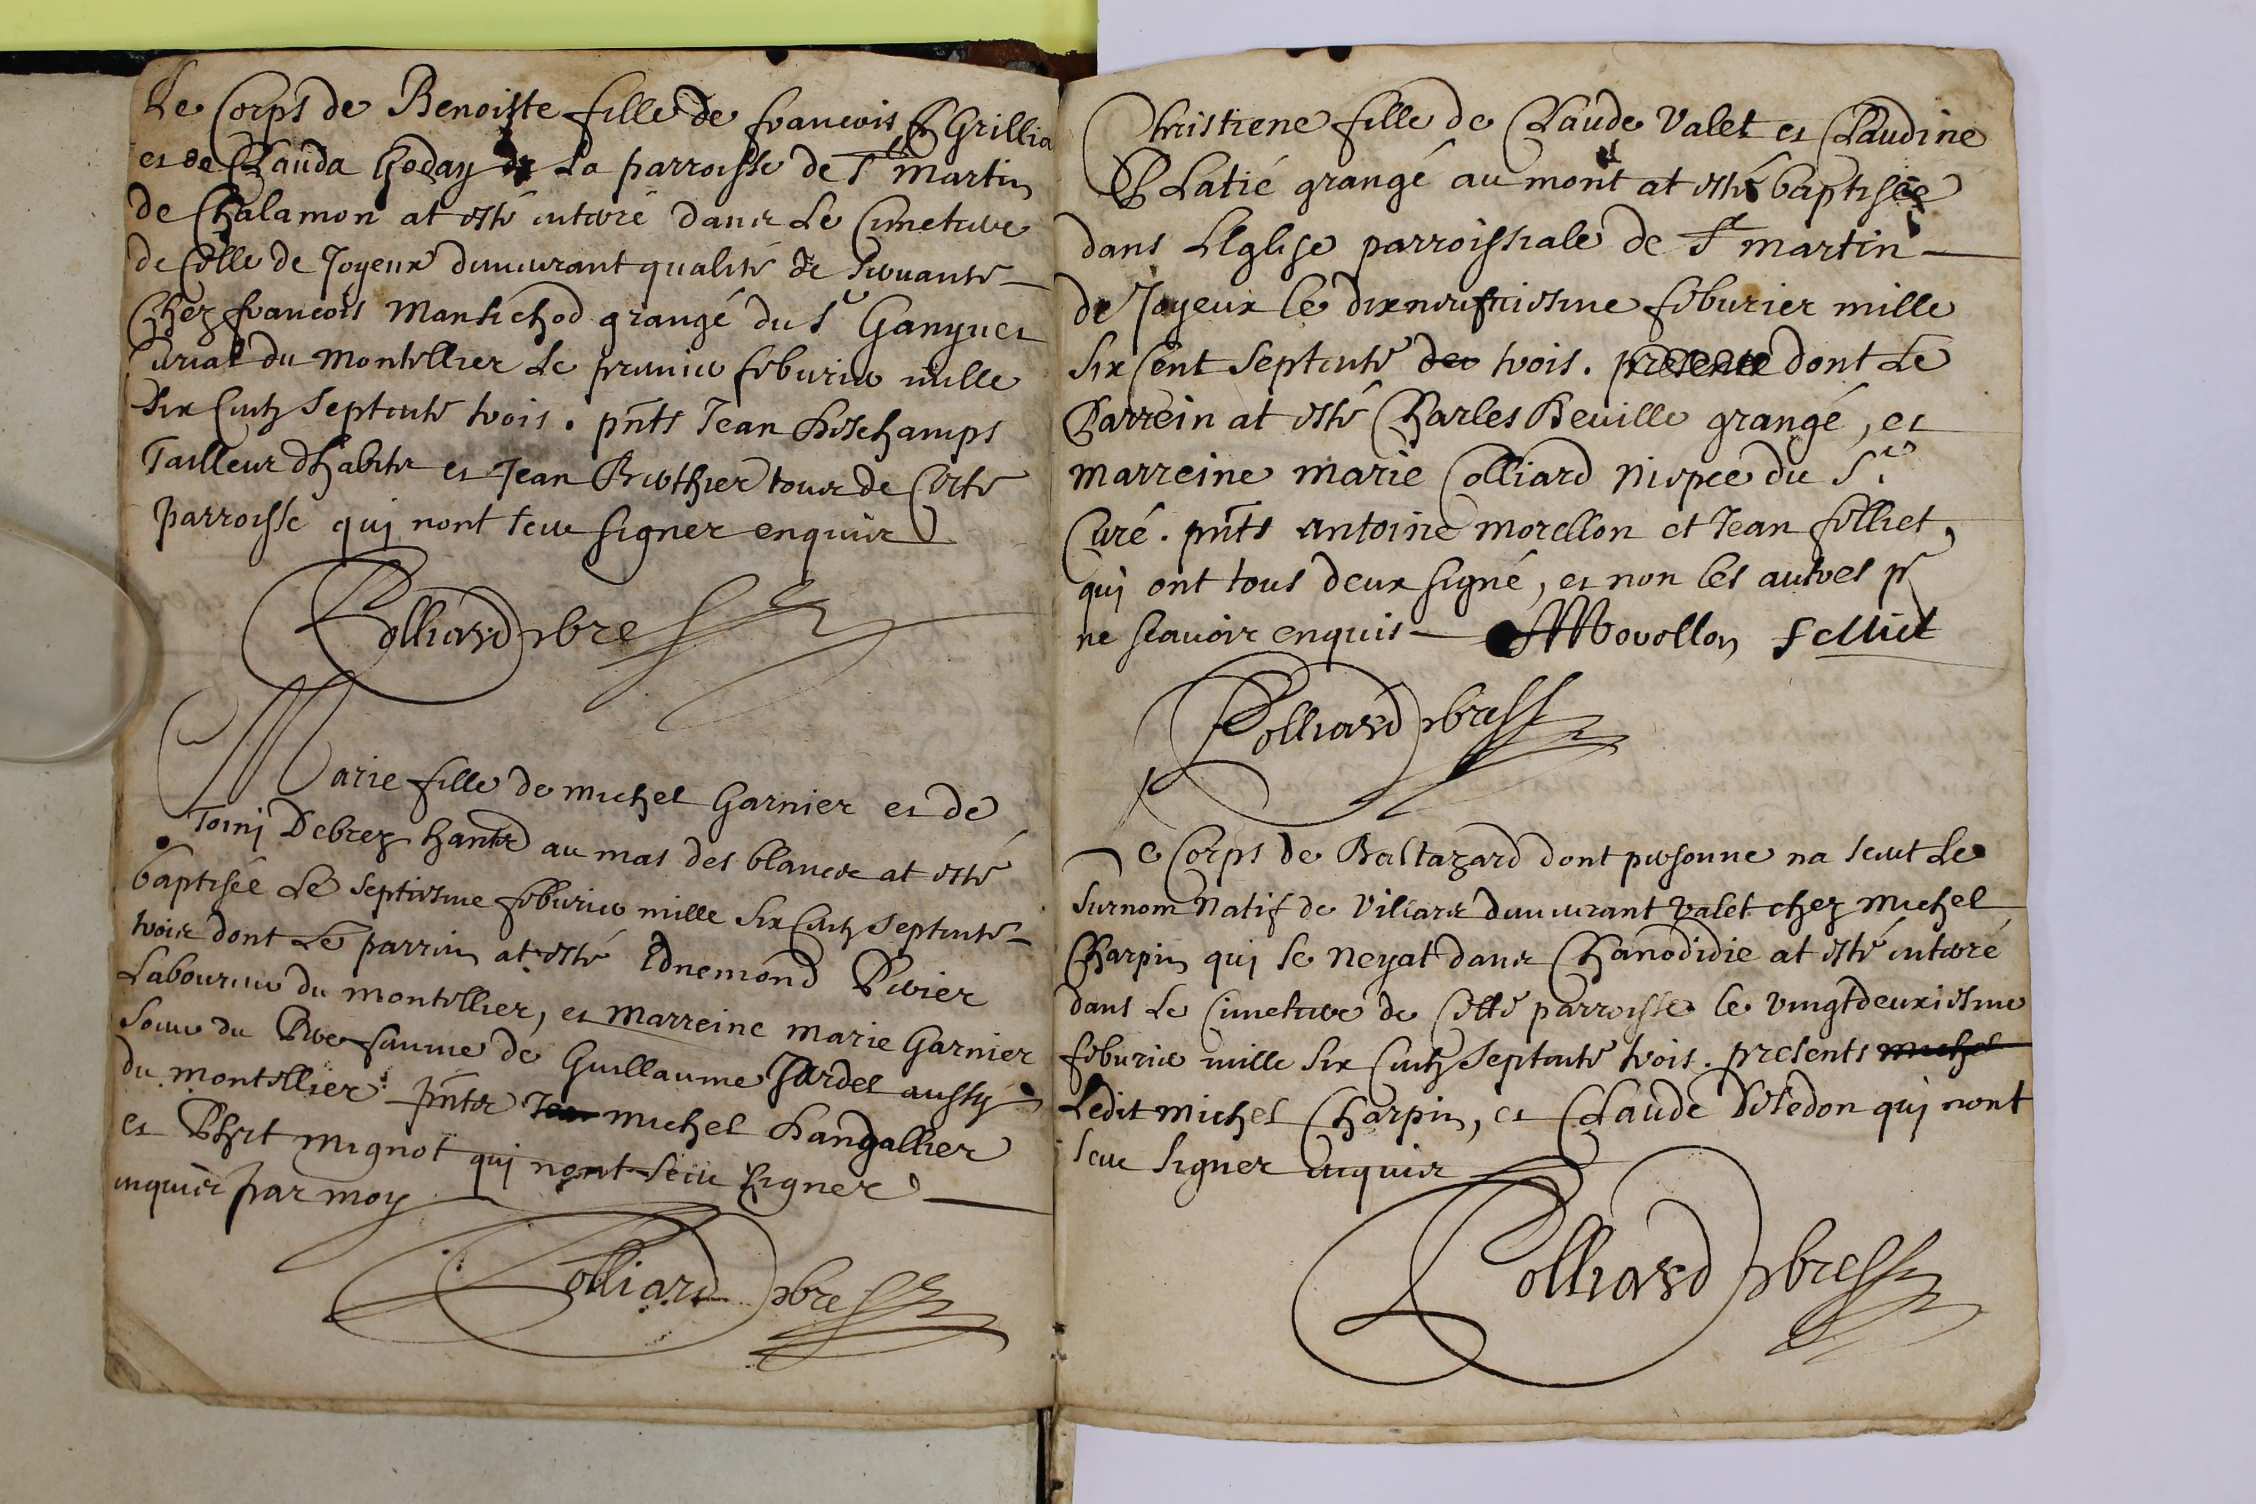 Le Corps de Benoiste fille de francois Grillia
et de Clauda Goday de La parroisse de St Martin
de Chalamon at esté enterré dans Le Cimetiere
de Celle de Joyeux demeurant qualité de servante
Chez francois Manhichod grangé du Sr Ganguet
Curial du Montellier Le premier feburier mille
Six Centz Septente trois. pnts Jean Deschamps
Tailleur dhabits et Jean Berthier tous de Ceste
parroisse qui nont sceu signer enquis
Colliard pbre
Marie fille de Michel Garnier et de
Toini Debrez hants au mas des blancs at esté
baptisée Le Septiesme feburier mille Six Centz Septente
trois dont Le parrin at esté Ednemond Perier
Laboureur du montellier, et Marreine Marie Garnier
Soeur du Pere famme de Guillaume Jardet aussy
du montellier pnts Jean Michel Dangallier
et Phpt Mignot qui nont sceu signer
enquis par moy
Colliard pbre
Christiene fille de Claude Valet et Claudine
Platié grangé au mont at esté baptisée
dans LEglise parroissiale de St Martin
de Joyeux le dixneufuiesme feburier mille
Six Cent Septente des trois. presents dont Le
Parrein at esté Charles Beuille grangé, et
Marreine Marie Colliard Niepce du Sr
Curé. pnts Antoine Morellon et Jean felliet,
qui ont tous deux signé, et non les autres pr
ne scauoir enquis AMorellon felliet
Colliard pbre
Le Corps de Baltazard dont personne na sceut Le
Surnom Natif de Villars demeurant valet chez Michel
Charpin qui se neyat dans Chanodidie at esté enterré
dans Le Cimetiere de Cette parroisse le vingtdeuxiesme
feburier mille Six Centz Septente trois. presents Michel
Ledit Michel Charpin, et Claude Deledon qui nont
sceu signer enquis
Colliard pbre